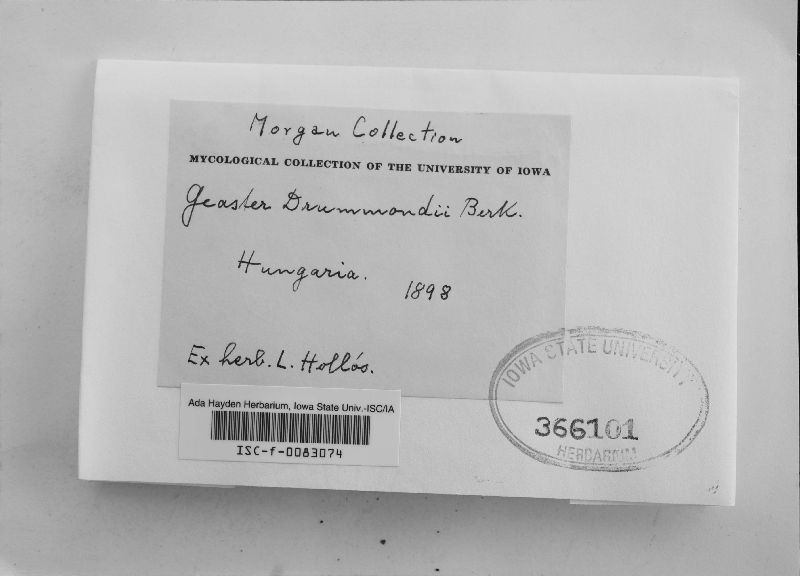 Morgan Collection
MYCOLOGICAL COLLECTION OF THE UNIVERSITY OF IOWA
Geaster Drummondii Berk.
Hungaria.
1898
Ex herb. L. Hollós.
Ada Hayden Herbarium, Iowa State Univ.-ISC/IA
ISC-f-0083074
IOWA STATE UNIVERSITY
366101
HERBARIUM